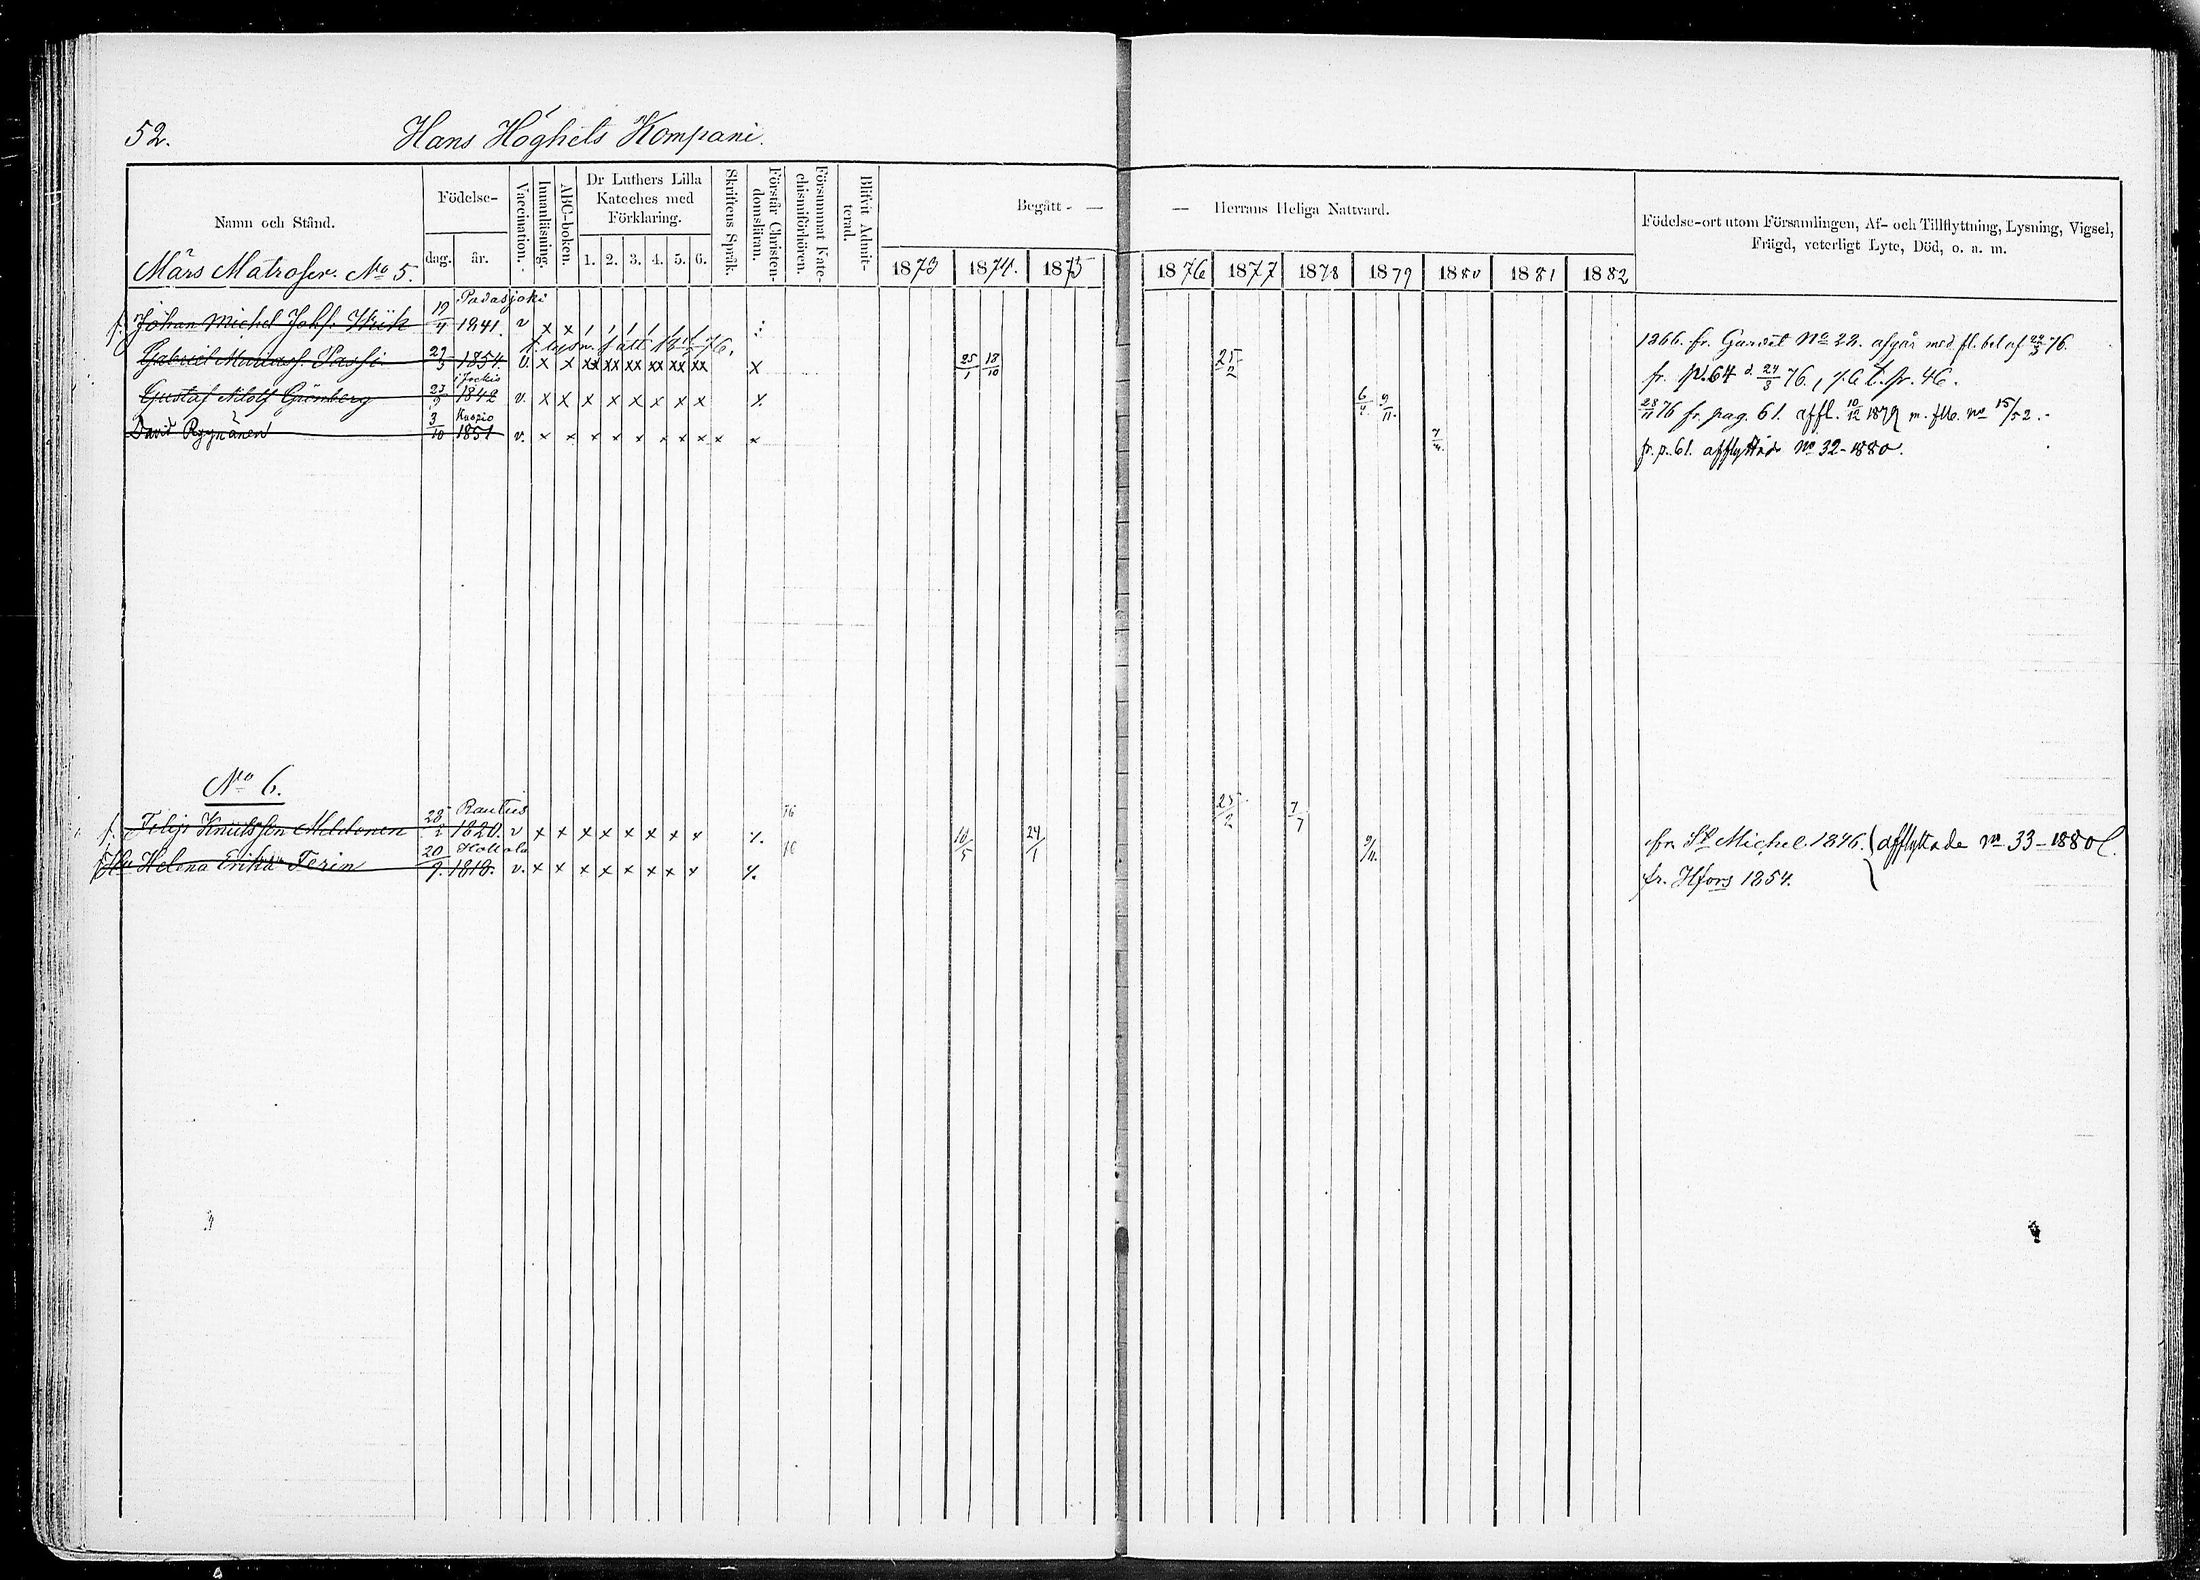 52. Hans Höghets Kompani.
Namn och Stånd. Födelse- dag. år. Vaccination. Innanläsning. ABC-boken. Dr Luthers Lilla Kateches med Förklaring. 1. 2. 3. 4. 5. 6. Skriftens Språk. Förstår Christendomsläran. Försummat Katechismiförhören. Blifvit Admitterad. Begått - — — Herrans Heliga Nattvard. Födelse-ort utom Församlingen, Af- och Tillflyttning, Lysning, Vigsel, Frägd, veterligt Lyte, Död, o. a. m.
1873 1874. 1875 1876 1877 1878 1879 1880 1881 1882
Märs Matroser. No 5.
Padasjoki
f. Johan Michel Johs. Wiik 19/4 1841. v x x 1866. fr. Gardet No 28. afgår med fl. bet af 22/3 76.
1 lysn. f. ått. 76.
Gabriel 23/3 1854. v. x x xx xx xx xx xx xx x 25/1 18/10 25/2 fr. p. 64 d. 24/3 76., fr. 46.
Jockis
Gustaf Adolf Grönberg 1842 v. x x x x x x x x 6/4. 9/11. 28/11 76 fr. pag. 61. affl. 10/12 1879 m. flb. no 15/52.
Kuopio
David Ryynänen 3/10 1851 v. x x x x x x x x x x 7/4. fr. p. 61. afflyttade No 32-1880.
No 6.
Rautus
f. Filip Knutsson 28/2 1820. v x x x x x x x x 16 10/5 24/1 25/2 7/7 9/11. fr. St Michel. 1846. afflyttade No 33-1880
Hollola
Helena Erika Terin 20/9. 1818. v. x x x x x x x x fr. Hfors 1854.